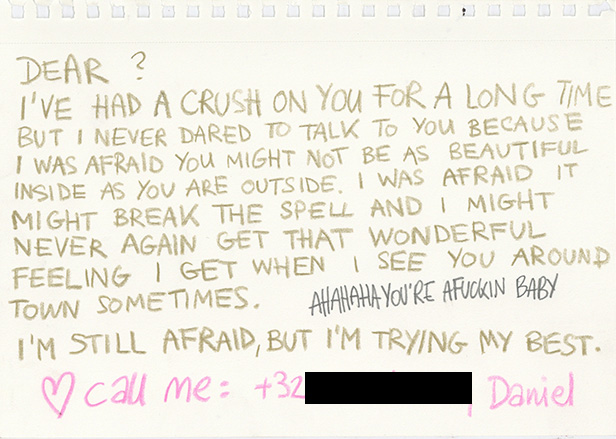 DEAR ?
I'VE HAD A CRUSH ON YOU FOR A LONG TIME
BUT I NEVER DARED TO TALK TO YOU BECAUSE
I WAS AFRAID YOU MIGHT NOT BE AS BEAUTIFUL
INSIDE AS YOU ARE OUTSIDE. I WAS AFRAID IT
MIGHT BREAK THE SPELL AND I MIGHT
NEVER AGAIN GET THAT WONDERFUL
FEELING I GET WHEN I SEE YOU AROUND
TOWN SOMETIMES.
AHAHAHA YOU'RE AFUCKIN BABY
I'M STILL AFRAID, BUT I'M TRYING MY BEST.
♡ call me: +32 , Daniel